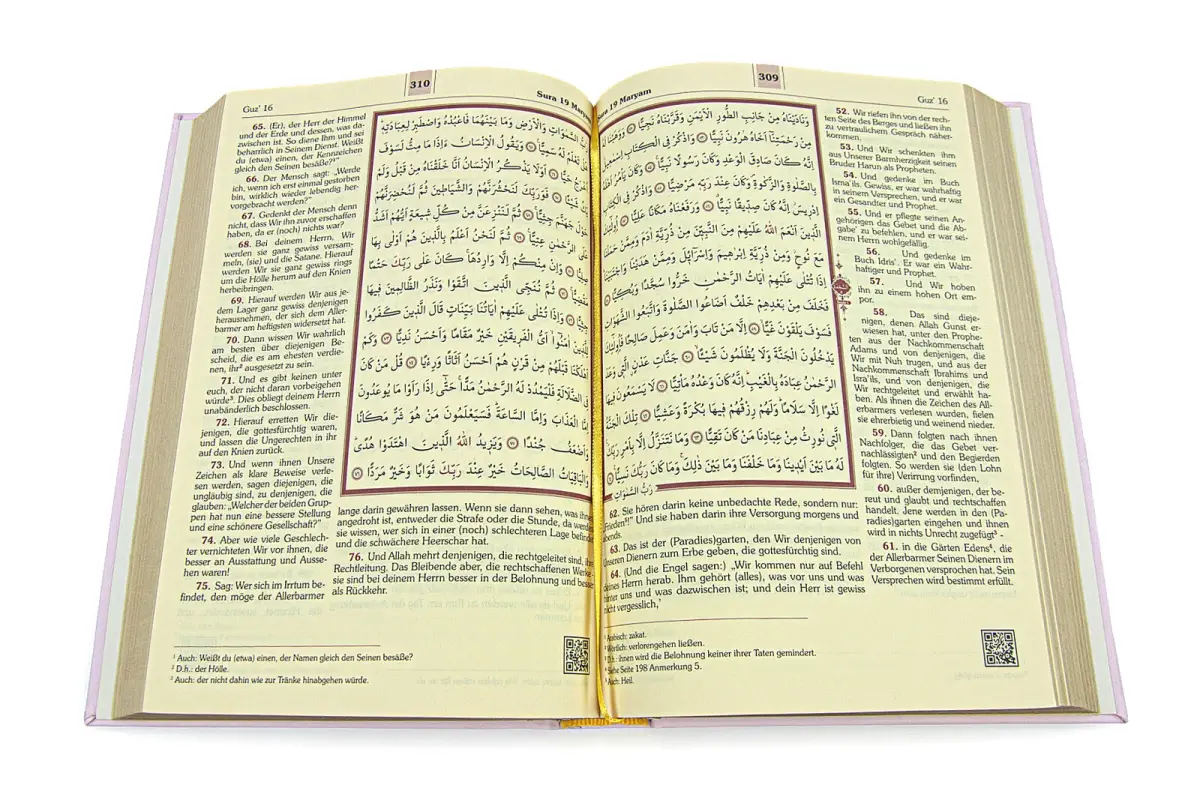 309
Guz' 16
Sura 19 Maryam
52. Wir riefen ihn von der rech-
ten Seite des Berges und ließen ihn
zu vertraulichem Gespräch näher-
kommen.
53. Und Wir schenkten ihm
aus Unserer Barmherzigkeit seinen
Bruder Harun als Propheten.
54. Und gedenke im Buch
Isma'ils. Gewiss, er war wahrhaftig
in seinem Versprechen, und er war
ein Gesandter und Prophet.
55. Und er pflegte seinen An-
gehörigen das Gebet und die Ab-
gabe¹ zu befehlen, und er war sei-
nem Herrn wohlgefällig.
56. Und gedenke im
Buch Idris'. Er war ein Wahr-
haftiger und Prophet.
57. Und Wir hoben
ihn zu einem hohen Ort em-
por.
58. Das sind dieje-
nigen, denen Allah Gunst er-
wiesen hat, unter den Prophe-
ten aus der Nachkommenschaft
Adams und von denjenigen, die
Wir mit Nuh trugen, und aus der
Nachkommenschaft Ibrahims und
Isra'ils, und von denjenigen, die
Wir rechtgeleitet und erwählt ha-
ben. Als ihnen die Zeichen des All-
erbarmers verlesen wurden, fielen
sie ehrerbietig und weinend nieder.
59. Dann folgten nach ihnen
Nachfolger, die das Gebet ver-
nachlässigten² und den Begierden
folgten. So werden sie (den Lohn
für ihre) Verirrung vorfinden,
60. außer demjenigen, der be-
reut und glaubt und rechtschaffen
handelt. Jene werden in den (Pa-
radies)garten eingehen und ihnen
wird in nichts Unrecht zugefügt³ -
61. in die Gärten Edens⁴, die
der Allerbarmer Seinen Dienern im
Verborgenen versprochen hat. Sein
Versprechen wird bestimmt erfüllt.
وَنَادَيْنَاهُ مِنْ جَانِبِ الطُّورِ الْاَيْمَنِ وَقَرَّبْنَاهُ نَجِيًّا ﴿٥٢﴾ وَوَهَبْنَا
مِنْ رَحْمَتِنَٓا اَخَاهُ هٰرُونَ نَبِيًّا ﴿٥٣﴾ وَاذْكُرْ فِي الْكِتَابِ
اِنَّهُ كَانَ صَادِقَ الْوَعْدِ وَكَانَ رَسُولًا نَبِيًّا ﴿٥٤﴾ وَكَانَ يَأْمُرُ
بِالصَّلٰوةِ وَالزَّكٰوةِ وَكَانَ عِنْدَ رَبِّه۪ مَرْضِيًّا ﴿٥٥﴾ وَاذْكُرْ فِي الْكِتَابِ
اِدْر۪يسَ اِنَّهُ كَانَ صِدّ۪يقًا نَبِيًّا ﴿٥٦﴾ وَرَفَعْنَاهُ مَكَانًا عَلِيًّا ﴿٥٧﴾ اُو۬لٰٓئِكَ
الَّذ۪ينَ اَنْعَمَ اللّٰهُ عَلَيْهِمْ مِنَ النَّبِيّ۪نَ مِنْ ذُرِّيَّةِ اٰدَمَ وَمِمَّنْ حَمَلْنَا
مَعَ نُوحٍ وَمِنْ ذُرِّيَّةِ اِبْرٰه۪يمَ وَاِسْرَٓائ۪لَ وَمِمَّنْ هَدَيْنَا وَاجْتَبَيْنَا
اِذَا تُتْلٰى عَلَيْهِمْ اٰيَاتُ الرَّحْمٰنِ خَرُّوا سُجَّدًا وَبُكِيًّا ﴿٥٨﴾
فَخَلَفَ مِنْ بَعْدِهِمْ خَلْفٌ اَضَاعُوا الصَّلٰوةَ وَاتَّبَعُوا الشَّهَوَاتِ
فَسَوْفَ يَلْقَوْنَ غَيًّا ﴿٥٩﴾ اِلَّا مَنْ تَابَ وَاٰمَنَ وَعَمِلَ صَالِحًا فَاُو۬لٰٓئِكَ
يَدْخُلُونَ الْجَنَّةَ وَلَا يُظْلَمُونَ شَيْـًٔا ﴿٦٠﴾ جَنَّاتِ عَدْنٍ الَّت۪ي وَعَدَ
الرَّحْمٰنُ عِبَادَهُ بِالْغَيْبِ اِنَّهُ كَانَ وَعْدُهُ مَأْتِيًّا ﴿٦١﴾ لَا يَسْمَعُونَ ف۪يهَا
لَغْوًا اِلَّا سَلَامًا وَلَهُمْ رِزْقُهُمْ ف۪يهَا بُكْرَةً وَعَشِيًّا ﴿٦٢﴾ تِلْكَ الْجَنَّةُ
الَّت۪ي نُورِثُ مِنْ عِبَادِنَا مَنْ كَانَ تَقِيًّا ﴿٦٣﴾ وَمَا نَتَنَزَّلُ اِلَّا بِاَمْرِ رَبِّكَ
لَهُ مَا بَيْنَ اَيْد۪ينَا وَمَا خَلْفَنَا وَمَا بَيْنَ ذٰلِكَ وَمَا كَانَ رَبُّكَ نَسِيًّا ﴿٦٤﴾
رَبُّ السَّمٰوَاتِ
62. Sie hören darin keine unbedachte Rede, sondern nur:
„Frieden⁵!" Und sie haben darin ihre Versorgung morgens und
abends.
63. Das ist der (Paradies)garten, den Wir denjenigen von
Unseren Dienern zum Erbe geben, die gottesfürchtig sind.
64. (Und die Engel sagen:) „Wir kommen nur auf Befehl
deines Herrn herab. Ihm gehört (alles), was vor uns und was
hinter uns und was dazwischen ist; und dein Herr ist gewiss
nicht vergesslich,'
¹ Arabisch: zakat.
² Wörtlich: verlorengehen ließen.
³ D.h.: ihnen wird die Belohnung keiner ihrer Taten gemindert.
⁴ Siehe Seite 198 Anmerkung 5.
⁵ Auch: Heil.
310
Guz' 16
Sura 19 Maryam
65. (Er), der Herr der Himmel
und der Erde und dessen, was da-
zwischen ist. So diene Ihm und sei
beharrlich in Seinem Dienst. Weißt
du (etwa) einen, der Kennzeichen
gleich den Seinen besäße?¹"
66. Der Mensch sagt: „Werde
ich, wenn ich erst einmal gestorben
bin, wirklich wieder lebendig her-
vorgebracht werden?"
67. Gedenkt der Mensch denn
nicht, dass Wir ihn zuvor erschaffen
haben, da er (noch) nichts war?
68. Bei deinem Herrn, Wir
werden sie ganz gewiss versam-
meln, (sie) und die Satane. Hierauf
werden Wir sie ganz gewiss rings
um die Hölle herum auf den Knien
herbeibringen.
69. Hierauf werden Wir aus je-
dem Lager ganz gewiss denjenigen
herausnehmen, der sich dem Aller-
barmer am heftigsten widersetzt hat.
70. Dann wissen Wir wahrlich
am besten über diejenigen Be-
scheid, die es am ehesten verdie-
nen, ihr² ausgesetzt zu sein.
71. Und es gibt keinen unter
euch, der nicht daran vorbeigehen
würde³. Dies obliegt deinem Herrn
unabänderlich beschlossen.
72. Hierauf erretten Wir die-
jenigen, die gottesfürchtig waren,
und lassen die Ungerechten in ihr
auf den Knien zurück.
73. Und wenn ihnen Unsere
Zeichen als klare Beweise verle-
sen werden, sagen diejenigen, die
ungläubig sind, zu denjenigen, die
glauben: „Welcher der beiden Grup-
pen hat nun eine bessere Stellung
und eine schönere Gesellschaft?"
74. Aber wie viele Geschlech-
ter vernichteten Wir vor ihnen, die
besser an Ausstattung und Ausse-
hen waren!
75. Sag: Wer sich im Irrtum be-
findet, den möge der Allerbarmer
السَّمٰوَاتِ وَالْاَرْضِ وَمَا بَيْنَهُمَا فَاعْبُدْهُ وَاصْطَبِرْ لِعِبَادَتِه۪
تَعْلَمُ لَهُ سَمِيًّا ﴿٦٥﴾ وَيَقُولُ الْاِنْسَانُ ءَاِذَا مَا مِتُّ لَسَوْفَ
اُخْرَجُ حَيًّا ﴿٦٦﴾ اَوَلَا يَذْكُرُ الْاِنْسَانُ اَنَّا خَلَقْنَاهُ مِنْ قَبْلُ وَلَمْ
شَيْـًٔا ﴿٦٧﴾ فَوَرَبِّكَ لَنَحْشُرَنَّهُمْ وَالشَّيَاط۪ينَ ثُمَّ لَنُحْضِرَنَّهُمْ
حَوْلَ جَهَنَّمَ جِثِيًّا ﴿٦٨﴾ ثُمَّ لَنَنْزِعَنَّ مِنْ كُلِّ ش۪يعَةٍ اَيُّهُمْ اَشَدُّ
عَلَى الرَّحْمٰنِ عِتِيًّا ﴿٦٩﴾ ثُمَّ لَنَحْنُ اَعْلَمُ بِالَّذ۪ينَ هُمْ اَوْلٰى بِهَا
صِلِيًّا ﴿٧٠﴾ وَاِنْ مِنْكُمْ اِلَّا وَارِدُهَا كَانَ عَلٰى رَبِّكَ حَتْمًا
مَقْضِيًّا ﴿٧١﴾ ثُمَّ نُنَجِّي الَّذ۪ينَ اتَّقَوْا وَنَذَرُ الظَّالِم۪ينَ ف۪يهَا
جِثِيًّا ﴿٧٢﴾ وَاِذَا تُتْلٰى عَلَيْهِمْ اٰيَاتُنَا بَيِّنَاتٍ قَالَ الَّذ۪ينَ كَفَرُوا
لِلَّذ۪ينَ اٰمَنُوا اَيُّ الْفَر۪يقَيْنِ خَيْرٌ مَقَامًا وَاَحْسَنُ نَدِيًّا ﴿٧٣﴾ وَكَمْ
اَهْلَكْنَا قَبْلَهُمْ مِنْ قَرْنٍ هُمْ اَحْسَنُ اَثَاثًا وَرِءْيًا ﴿٧٤﴾ قُلْ مَنْ كَانَ
فِي الضَّلَالَةِ فَلْيَمْدُدْ لَهُ الرَّحْمٰنُ مَدًّا حَتّٰى اِذَا رَاَوْا مَا يُوعَدُونَ
اِمَّا الْعَذَابَ وَاِمَّا السَّاعَةَ فَسَيَعْلَمُونَ مَنْ هُوَ شَرٌّ مَكَانًا
وَاَضْعَفُ جُنْدًا ﴿٧٥﴾ وَيَز۪يدُ اللّٰهُ الَّذ۪ينَ اهْتَدَوْا هُدًى
وَالْبَاقِيَاتُ الصَّالِحَاتُ خَيْرٌ عِنْدَ رَبِّكَ ثَوَابًا وَخَيْرٌ مَرَدًّا ﴿٧٦﴾
lange darin gewähren lassen. Wenn sie dann sehen, was ihnen
angedroht ist, entweder die Strafe oder die Stunde, da werden
sie wissen, wer sich in einer (noch) schlechteren Lage befindet
und die schwächere Heerschar hat.
76. Und Allah mehrt denjenigen, die rechtgeleitet sind, ihre
Rechtleitung. Das Bleibende aber, die rechtschaffenen Werke -
sie sind bei deinem Herrn besser in der Belohnung und besser
als Rückkehr.
¹ Auch: Weißt du (etwa) einen, der Namen gleich den Seinen besäße?
² D.h.: der Hölle.
³ Auch: der nicht dahin wie zur Tränke hinabgehen würde.